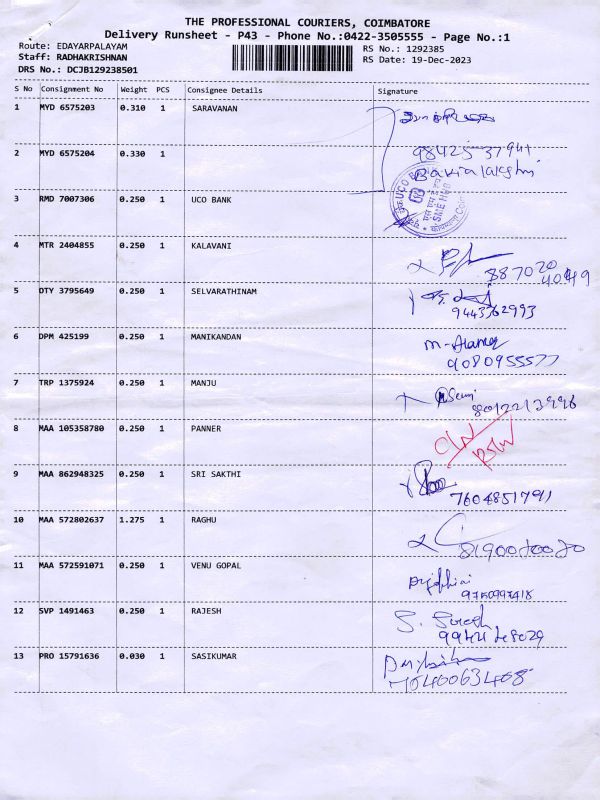 THE PROFESSIONAL COURIERS, COIMBATORE
Delivery Runsheet - P43 - Phone No.:0422-3505555 - Page No.:1
Route: EDAYARPALAYAM
Staff: RADHAKRISHNAN
DRS No.: DCJB129238501
RS No.: 1292385
RS Date: 19-Dec-2023
S No Consignment No Weight PCS Consignee Details Signature
1 MYD 6575203 0.310 1 SARAVANAN
2 MYD 6575204 0.330 1
98425 37941
Bakialakshmi
3 RMD 7007306 0.250 1 UCO BANK
UCO
SME HUB
4 MTR 2404855 0.250 1 KALAVANI
887020
4049
5 DTY 3795649 0.250 1 SELVARATHINAM
9443762993
6 DPM 425199 0.250 1 MANIKANDAN
9080955577
7 TRP 1375924 0.250 1 MANJU
8 MAA 105358780 0.250 1 PANNER
9 MAA 862948325 0.250 1 SRI SAKTHI
7604851791
10 MAA 572802637 1.275 1 RAGHU
11 MAA 572591071 0.250 1 VENU GOPAL
12 SVP 1491463 0.250 1 RAJESH
S. Suresh
13 PRO 15791636 0.030 1 SASIKUMAR